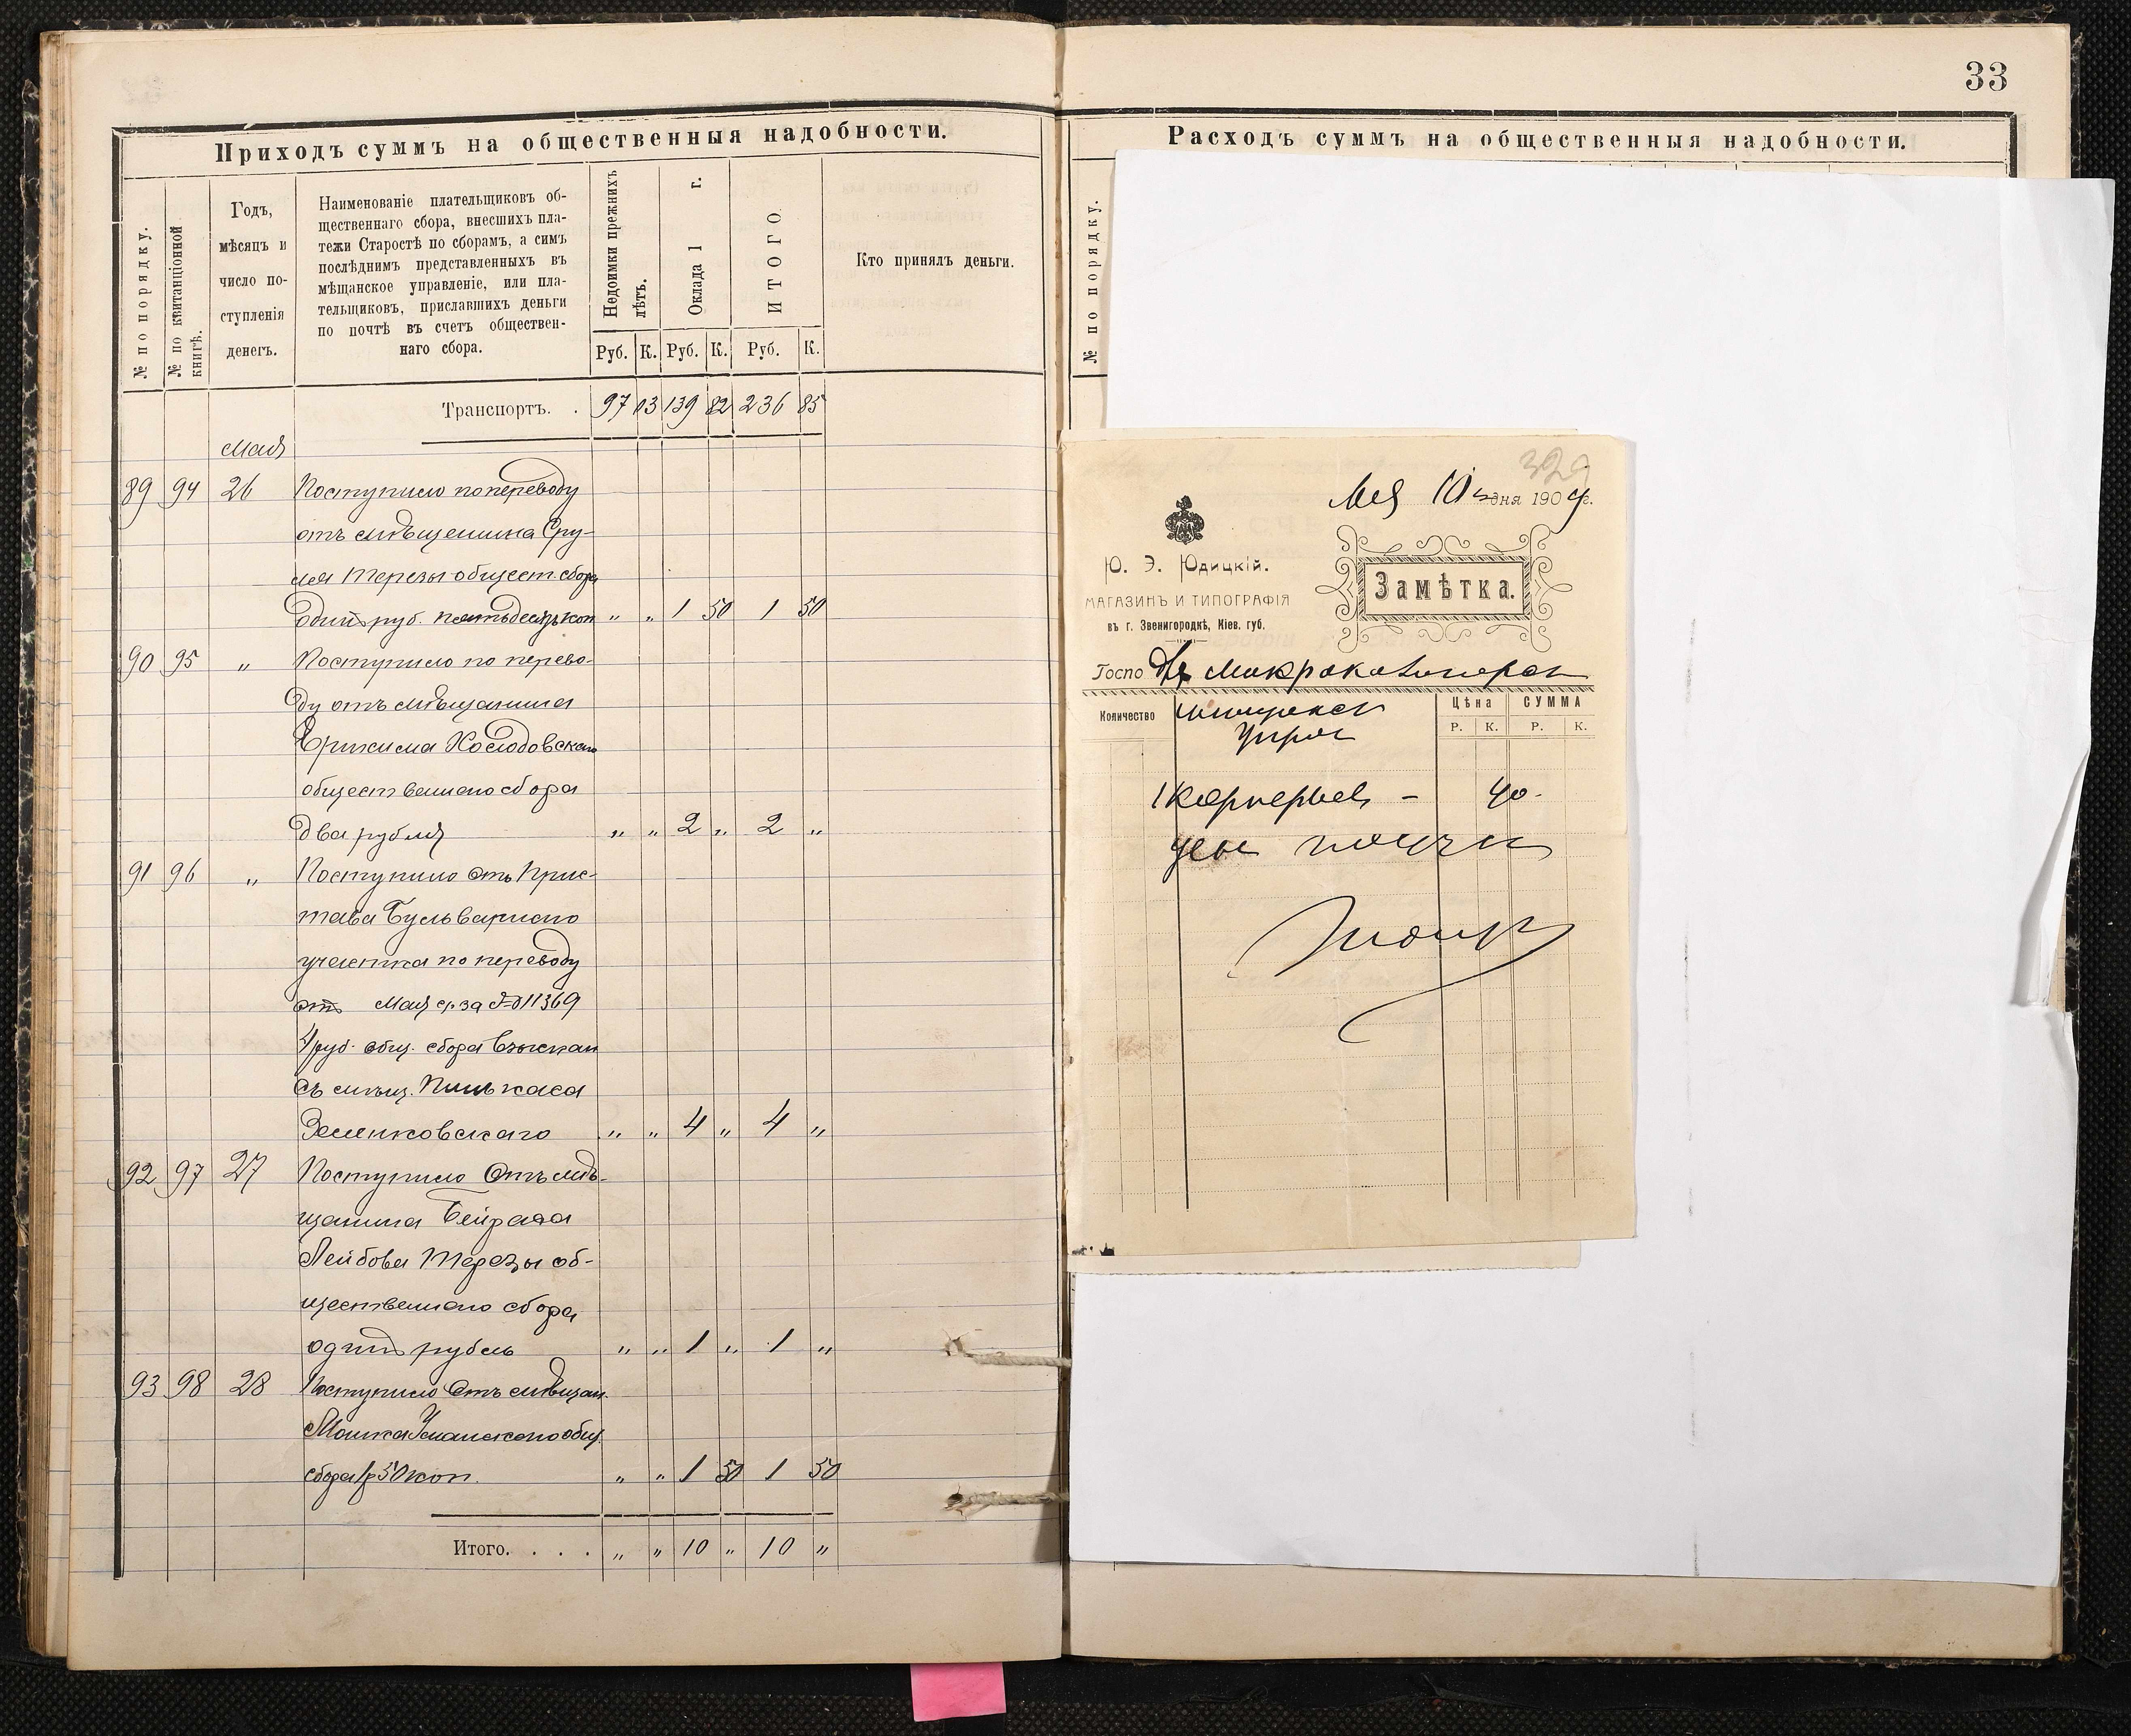 33
Приходъ суммъ на общественныя надобности.
№ по порядку.
№ по квитанціонной
книгѣ.
Годъ,
мѣсяцъ и
число по-
ступленія
денегъ.
Наименованіе плательщиковъ об-
щественнаго сбора, внесшихъ пла-
тежи Старостѣ по сборамъ, а симъ
послѣднимъ представленныхъ въ
мѣщанское управленіе, или пла-
тельщиковъ, приславшихъ деньги
по почтѣ въ счетъ обществен-
наго сбора.
Недоимки прежнихъ
лѣтъ.
Оклада 1 г.
ИТОГО
Кто принялъ деньги.
Руб. К. Руб. К. Руб. К.
Транспортъ. . 97 03 139 82 236 85
Мая
89 94 26 Поступило по переводу
отъ мѣщанина Сру-
ля Терезы общест. сбора
одинъ руб. пятьдесятъ коп „ „ 1 50 1 50
90 95 „ Поступило по перево-
ду отъ мѣщанина
Холодовскаго
общественнаго сбора
два рубля „ „ 2 „ 2 „
91 96 „ Поступило отъ Прис-
тава Бульварнаго
участка по переводу
отъ Мая с. г. за № 11369
4 руб. общ. сбора взыскан
съ мѣщ. Пинькаса
Зеленковскаго „ „ 4 „ 4 „
92 97 27 Поступило отъ мѣ-
щанина
Лейбова Терезы об-
щественнаго сбора
одинъ рубль „ „ 1 „ 1 „
93 98 28 Поступило отъ мѣщан.
Мошка Уманскаго общ.
сбора 1 р 50 коп. „ „ 1 50 1 50
Итого. . . . „ „ 10 „ 10 „
Расходъ суммъ на общественныя надобности.
№ по порядку.
329
Мая 10 дня 1904 г.
Ю. Э. Юдицкій.
МАГАЗИНЪ И ТИПОГРАФІЯ
въ г. Звенигородкѣ, Кіев. губ.
Замѣтка.
Госпо
Количество
Цѣна СУММА
Р. К. Р. К.
1 40 -